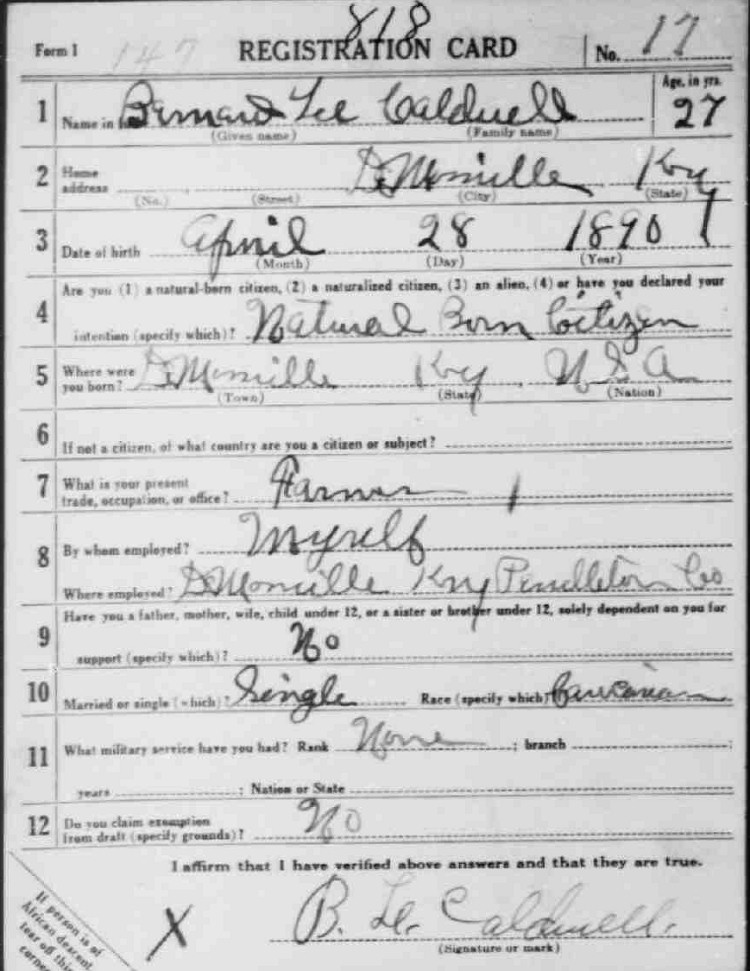 818
Form 1 147 REGISTRATION CARD No. 17
1 Name in Bernard Lee Caldwell Age, in yrs. 27
(Given name) (Family name)
2 Home address DeMossville Ky
(No.) (Street) (City) (State)
3 Date of birth April 28 1890
(Month) (Day) (Year)
Are you (1) a natural-born citizen, (2) a naturalized citizen, (3) an alien, (4) or have you declared your
4 intention (specify which)? Natural Born Citizen
5 Where were you born? DeMossville Ky, U S A
(Town) (State) (Nation)
6 If not a citizen, of what country are you a citizen or subject?
7 What is your present trade, occupation, or office? Farmer
8 By whom employed? Myself
Where employed? DeMossville Ky Pendleton Co
Have you a father, mother, wife, child under 12, or a sister or brother under 12, solely dependent on you for
9 support (specify which)? No
10 Married or single (which)? Single Race (specify which) Caucasian
11 What military service have you had? Rank None ; branch ;
years ; Nation or State
12 Do you claim exemption from draft (specify grounds)? No
I affirm that I have verified above answers and that they are true.
X B. Le. Caldwell.
(Signature or mark)
If person is of
African descent
tear off this
corner